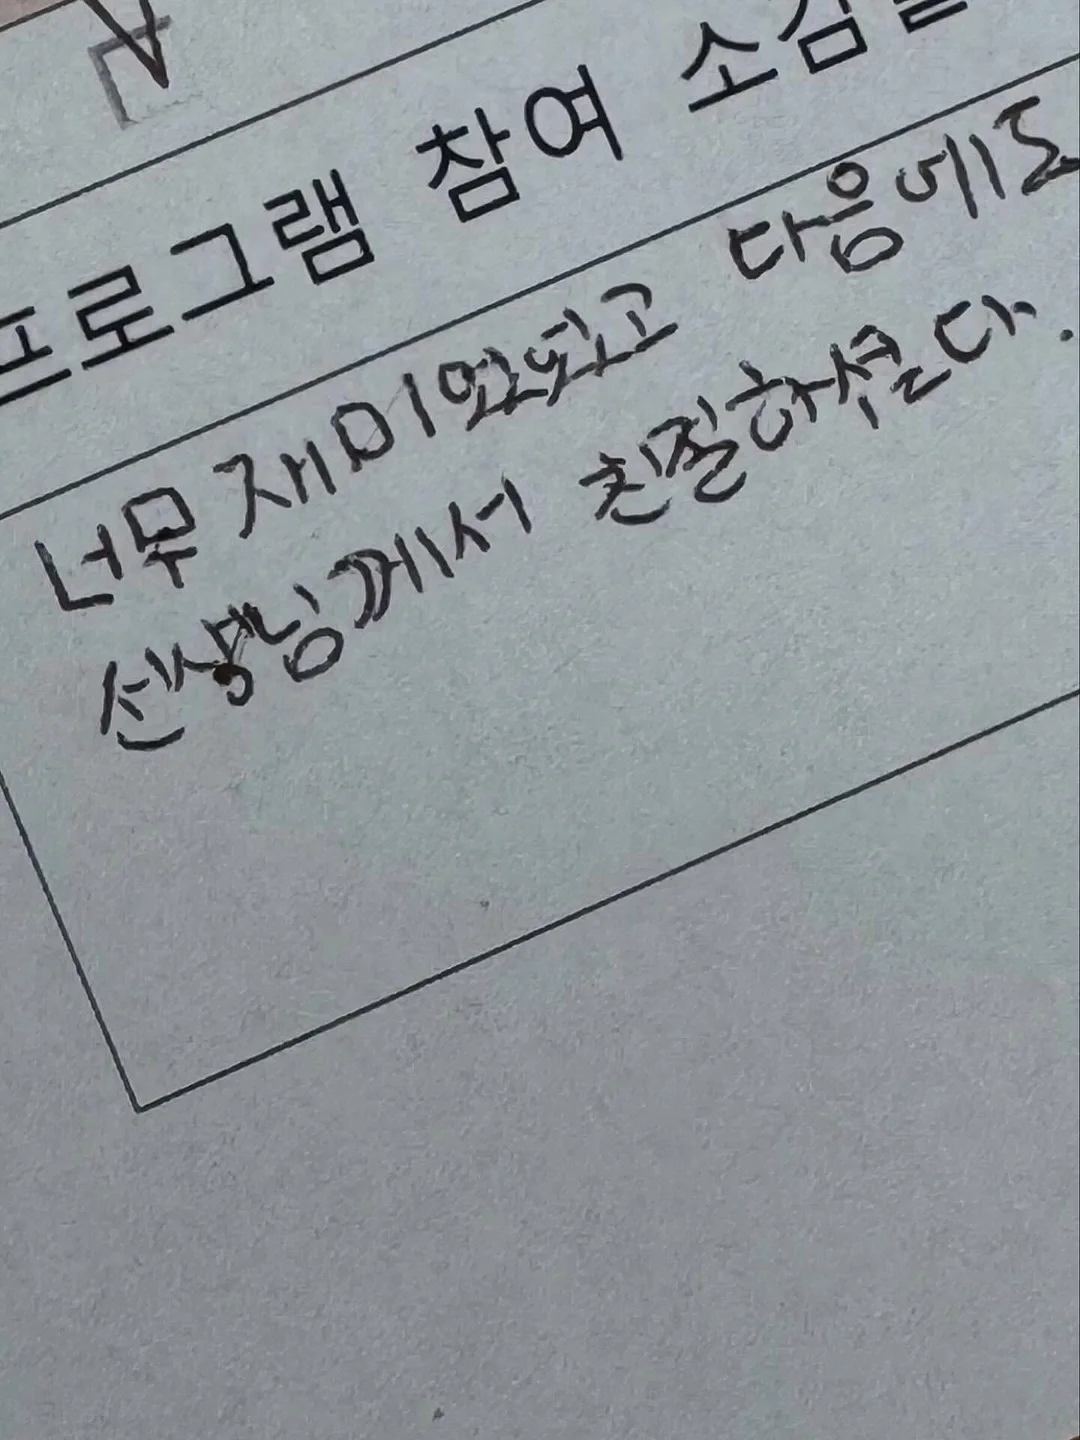 프로그램 참여 소감을
너무 재미있었고 다음에도
선생님께서 친절하셨다.